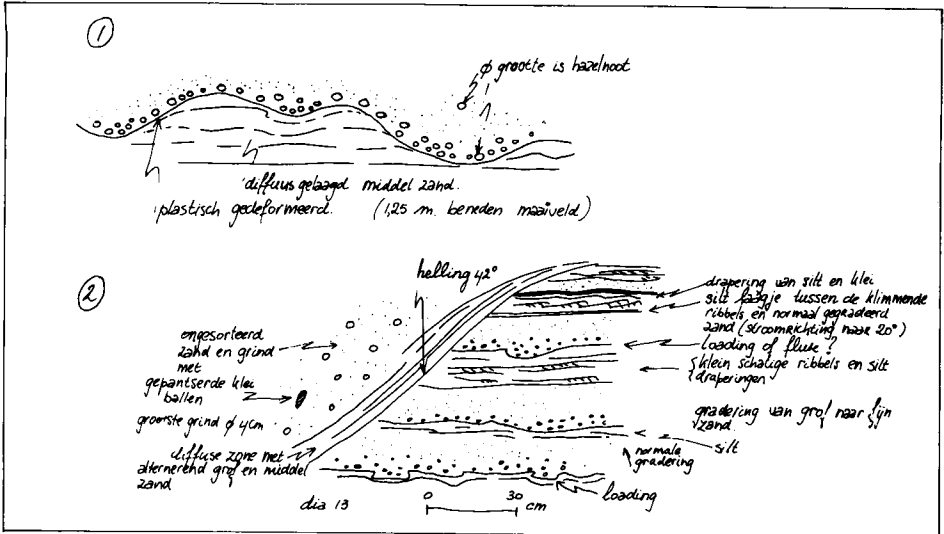 1
φ grootte is hazelnoot
diffuus gelaagd middel zand.
plastisch gedeformeerd. (1,25 m. beneden maaiveld)
2
helling 42°
ongesorteerd
zand en grind
met
gepantserde klei
ballen
grootste grind φ 4cm
diffuse zone met
alternerend grof en middel
zand
drapering van silt en klei
silt laagje tussen de klimmende
ribbels en normaal gegradeerd
zand (stroomrichting naar 20°)
loading of flute ?
klein schalige ribbels en silt
draperingen
gradering van grof naar fijn
zand
silt
normale
gradering
loading
dia 13
0 30
cm